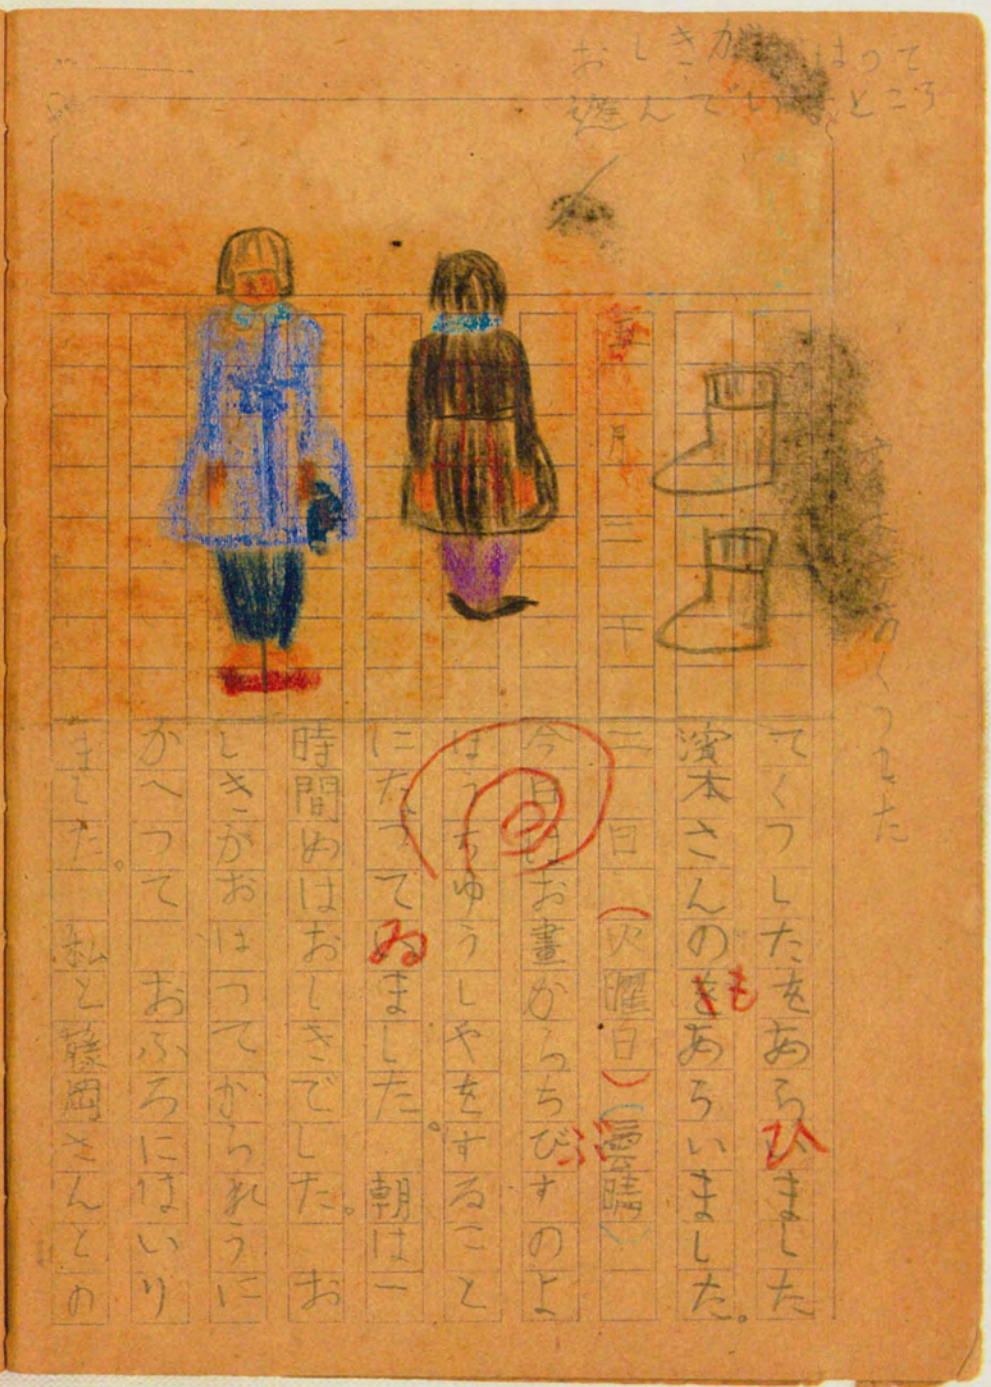 おしきが はつて
遊んでいるところ
てくつしたをあらひました
濱本さんのもあらいました。
月二十
三日(火曜日)(曇晴)
今日はお晝からちびぶすのよ
ばうちゆうしやをすること
になつてゐました。朝は一
時間めはおしきでした。お
しきがおはつてかられうに
かへつて おふろにはいり
ました。 私と藤岡さんとの